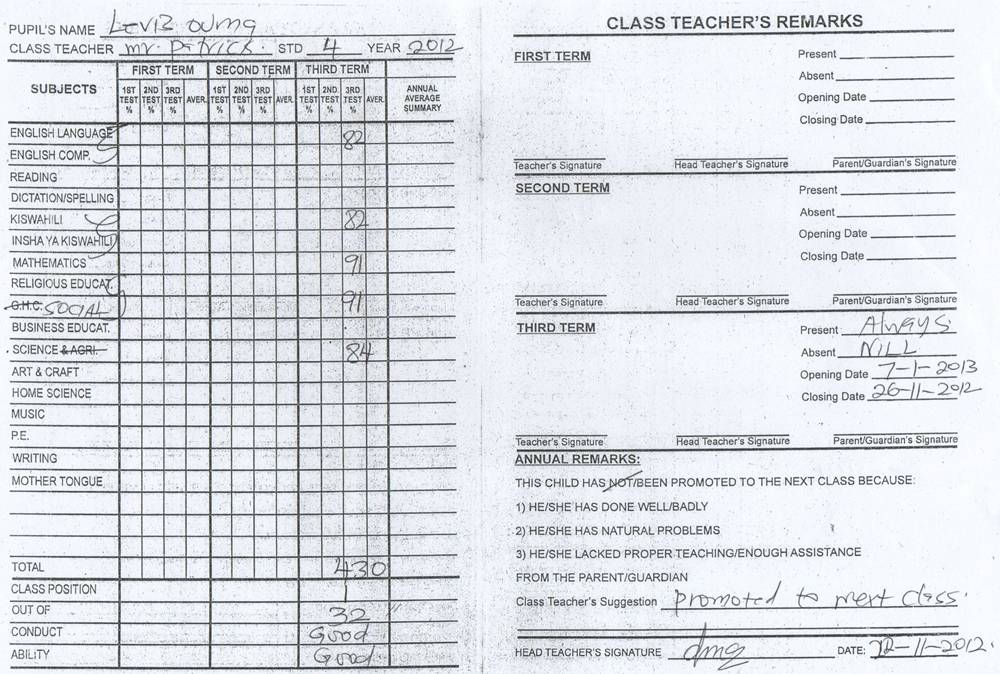 PUPIL'S NAME Levis Ouma
CLASS TEACHER Mr. Patrick. STD 4 YEAR 2012
SUBJECTS FIRST TERM SECOND TERM THIRD TERM ANNUAL AVERAGE SUMMARY
1ST TEST % 2ND TEST % 3RD TEST % AVER. 1ST TEST % 2ND TEST % 3RD TEST % AVER. 1ST TEST % 2ND TEST % 3RD TEST % AVER.
ENGLISH LANGUAGE 82
ENGLISH COMP.
READING
DICTATION/SPELLING
KISWAHILI 82
INSHA YA KISWAHILI
MATHEMATICS 91
RELIGIOUS EDUCAT.
G.H.C. SOCIAL 91
BUSINESS EDUCAT.
SCIENCE & AGRI. 84
ART & CRAFT
HOME SCIENCE
MUSIC
P.E.
WRITING
MOTHER TONGUE
TOTAL 430
CLASS POSITION 1
OUT OF 32
CONDUCT Good
ABILITY Good
CLASS TEACHER'S REMARKS
FIRST TERM Present
Absent
Opening Date
Closing Date
Teacher's Signature Head Teacher's Signature Parent/Guardian's Signature
SECOND TERM Present
Absent
Opening Date
Closing Date
Teacher's Signature Head Teacher's Signature Parent/Guardian's Signature
THIRD TERM Present Always.
Absent NILL
Opening Date 7-1-2013
Closing Date 26-11-2012
Teacher's Signature Head Teacher's Signature Parent/Guardian's Signature
ANNUAL REMARKS:
THIS CHILD HAS NOT/BEEN PROMOTED TO THE NEXT CLASS BECAUSE:
1) HE/SHE HAS DONE WELL/BADLY
2) HE/SHE HAS NATURAL PROBLEMS
3) HE/SHE LACKED PROPER TEACHING/ENOUGH ASSISTANCE
FROM THE PARENT/GUARDIAN
Class Teacher's Suggestion promoted to next class.
HEAD TEACHER'S SIGNATURE DATE: -11-2012.